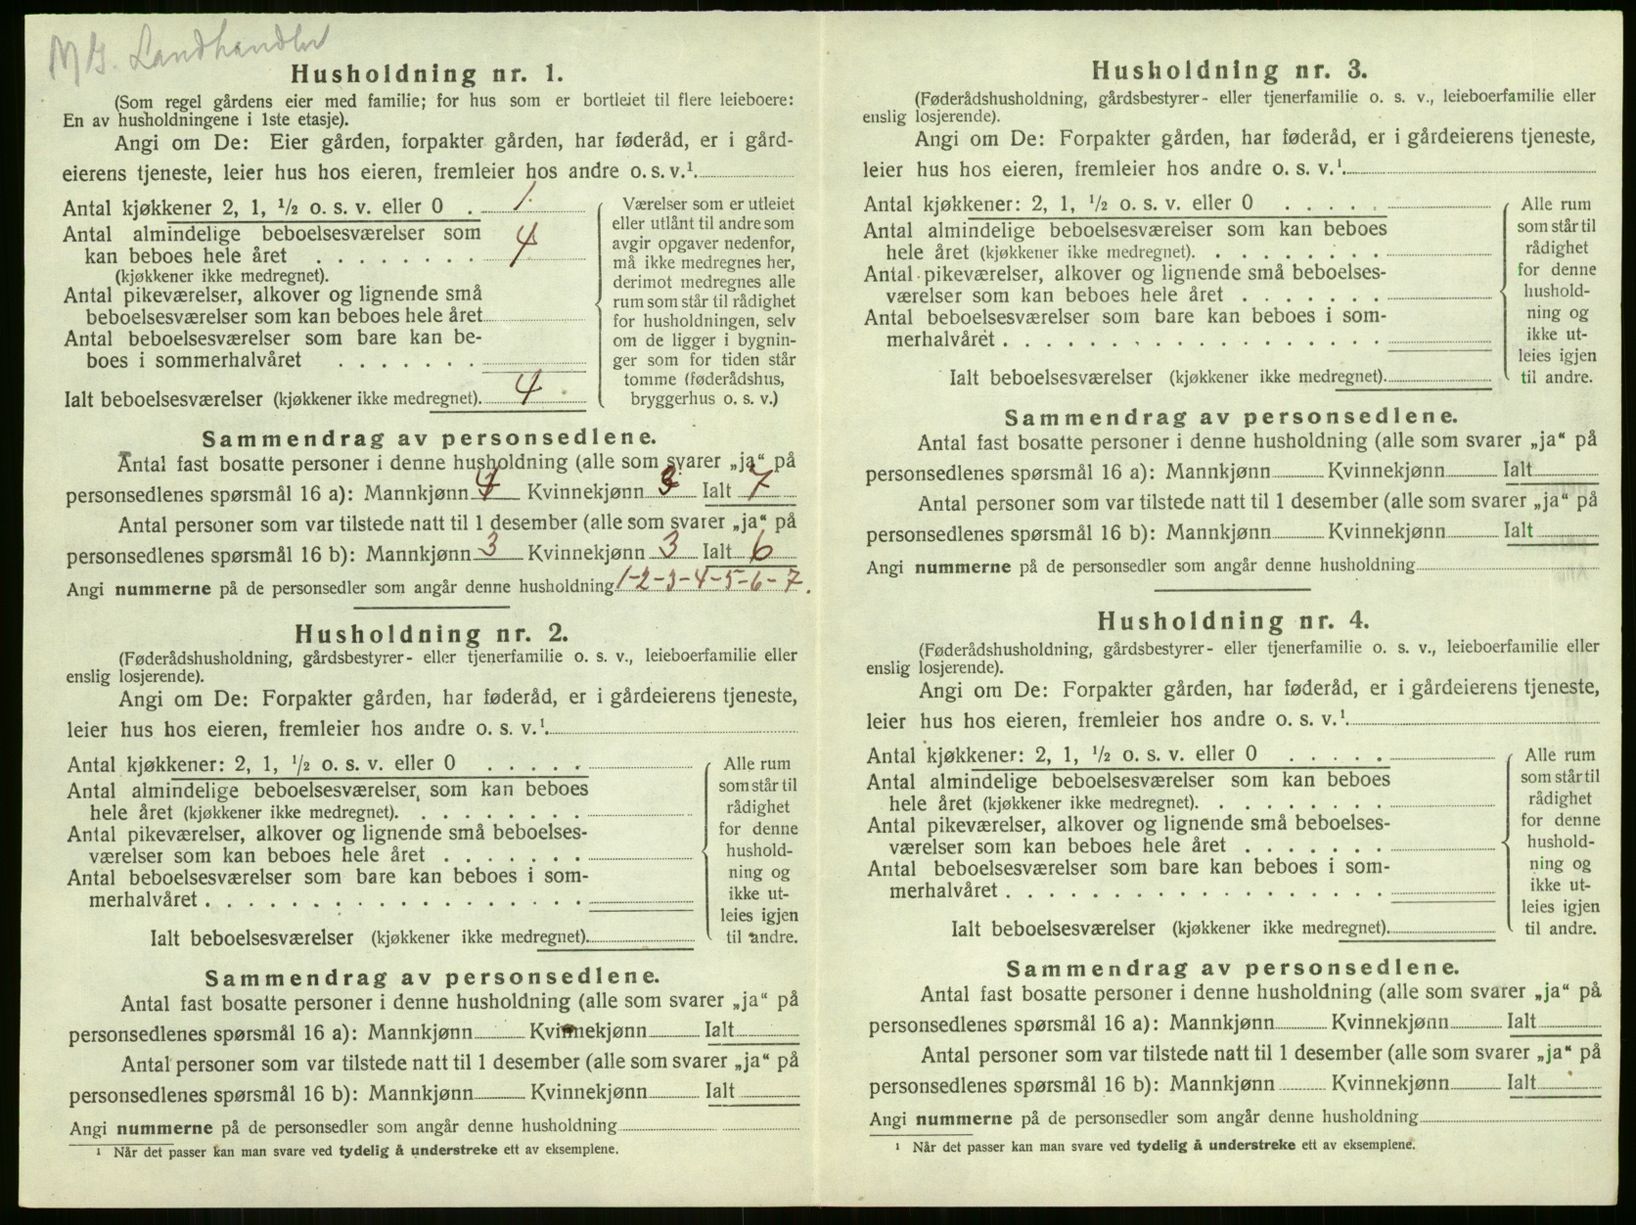 M G. Landhandler
Husholdning nr. 1.
(Som regel gårdens eier med familie; for hus som er bortleiet til flere leieboere:
En av husholdningene i 1ste etasje).
Angi om De: Eier gården, forpakter gården, har føderåd, er i gård-
eierens tjeneste, leier hus hos eieren, fremleier hos andre o. s. v.¹.
Antal kjøkkener 2, 1, ½ o. s. v. eller 0 . 1.
Antal almindelige beboelsesværelser som
kan beboes hele året . . . . . . . . 4
(kjøkkener ikke medregnet).
Antal pikeværelser, alkover og lignende små
beboelsesværelser som kan beboes hele året
Antal beboelsesværelser som bare kan be-
boes i sommerhalvåret . . . . . . .
Ialt beboelsesværelser (kjøkkener ikke medregnet). 4
Værelser som er utleiet
eller utlånt til andre som
avgir opgaver nedenfor,
må ikke medregnes her,
derimot medregnes alle
rum som står til rådighet
for husholdningen, selv
om de ligger i bygnin-
ger som for tiden står
tomme (føderådshus,
bryggerhus o. s. v.)
Sammendrag av personsedlene.
Antal fast bosatte personer i denne husholdning (alle som svarer „ja“ på
personsedlenes spørsmål 16 a): Mannkjønn 4 Kvinnekjønn 3 Ialt 7
Antal personer som var tilstede natt til 1 desember (alle som svarer „ja“ på
personsedlenes spørsmål 16 b): Mannkjønn 3 Kvinnekjønn 3 Ialt 6
Angi nummerne på de personsedler som angår denne husholdning 1-2-3-4-5-6-7.
Husholdning nr. 2.
(Føderådshusholdning, gårdsbestyrer- eller tjenerfamilie o. s. v., leieboerfamilie eller
enslig losjerende).
Angi om De: Forpakter gården, har føderåd, er i gårdeierens tjeneste,
leier hus hos eieren, fremleier hos andre o. s. v.¹.
Antal kjøkkener: 2, 1, ½ o. s. v. eller 0 . . . . .
Antal almindelige beboelsesværelser som kan beboes
hele året (kjøkkener ikke medregnet). . . . . . . . .
Antal pikeværelser, alkover og lignende små beboelses-
værelser som kan beboes hele året . . . . . . .
Antal beboelsesværelser som bare kan beboes i som-
merhalvåret . . . . . . . . . . . . . . . . .
Ialt beboelsesværelser (kjøkkener ikke medregnet).
Alle rum
som står til
rådighet
for denne
hushold-
ning og
ikke ut-
leies igjen
til andre.
Sammendrag av personsedlene.
Antal fast bosatte personer i denne husholdning (alle som svarer „ja“ på
personsedlenes spørsmål 16 a): Mannkjønn Kvinnekjønn Ialt
Antal personer som var tilstede natt til 1 desember (alle som svarer „ja“ på
personsedlenes spørsmål 16 b): Mannkjønn Kvinnekjønn Ialt
Angi nummerne på de personsedler som angår denne husholdning
¹ Når det passer kan man svare ved tydelig å understreke ett av eksemplene.
Husholdning nr. 3.
(Føderådshusholdning, gårdsbestyrer- eller tjenerfamilie o. s. v., leieboerfamilie eller
enslig losjerende).
Angi om De: Forpakter gården, har føderåd, er i gårdeierens tjeneste,
leier hus hos eieren, fremleier hos andre o. s. v.¹.
Antal kjøkkener: 2, 1, ½ o. s. v. eller 0 . . . . .
Antal almindelige beboelsesværelser som kan beboes
hele året (kjøkkener ikke medregnet). . . . . . . . .
Antal pikeværelser, alkover og lignende små beboelses-
værelser som kan beboes hele året . . . . . . .
Antal beboelsesværelser som bare kan beboes i som-
merhalvåret . . . . . . . . . . . . . . . . .
Ialt beboelsesværelser (kjøkkener ikke medregnet).
Alle rum
som står til
rådighet
for denne
hushold-
ning og
ikke ut-
leies igjen
til andre.
Sammendrag av personsedlene.
Antal fast bosatte personer i denne husholdning (alle som svarer „ja“ på
personsedlenes spørsmål 16 a): Mannkjønn Kvinnekjønn Ialt
Antal personer som var tilstede natt til 1 desember (alle som svarer „ja“ på
personsedlenes spørsmål 16 b): Mannkjønn Kvinnekjønn Ialt
Angi nummerne på de personsedler som angår denne husholdning
Husholdning nr. 4.
(Føderådshusholdning, gårdsbestyrer- eller tjenerfamilie o. s. v., leieboerfamilie eller
enslig losjerende).
Angi om De: Forpakter gården, har føderåd, er i gårdeierens tjeneste,
leier hus hos eieren, fremleier hos andre o. s. v.¹.
Antal kjøkkener: 2, 1, ½ o. s. v. eller 0 . . . . .
Antal almindelige beboelsesværelser som kan beboes
hele året (kjøkkener ikke medregnet). . . . . . . . .
Antal pikeværelser, alkover og lignende små beboelses-
værelser som kan beboes hele året . . . . . . .
Antal beboelsesværelser som bare kan beboes i som-
merhalvåret . . . . . . . . . . . . . . . . .
Ialt beboelsesværelser (kjøkkener ikke medregnet).
Alle rum
som står til
rådighet
for denne
hushold-
ning og
ikke ut-
leies igjen
til andre.
Sammendrag av personsedlene.
Antal fast bosatte personer i denne husholdning (alle som svarer „ja“ på
personsedlenes spørsmål 16 a): Mannkjønn Kvinnekjønn Ialt
Antal personer som var tilstede natt til 1 desember (alle som svarer „ja“ på
personsedlenes spørsmål 16 b): Mannkjønn Kvinnekjønn Ialt
Angi nummerne på de personsedler som angår denne husholdning
¹ Når det passer kan man svare ved tydelig å understreke ett av eksemplene.